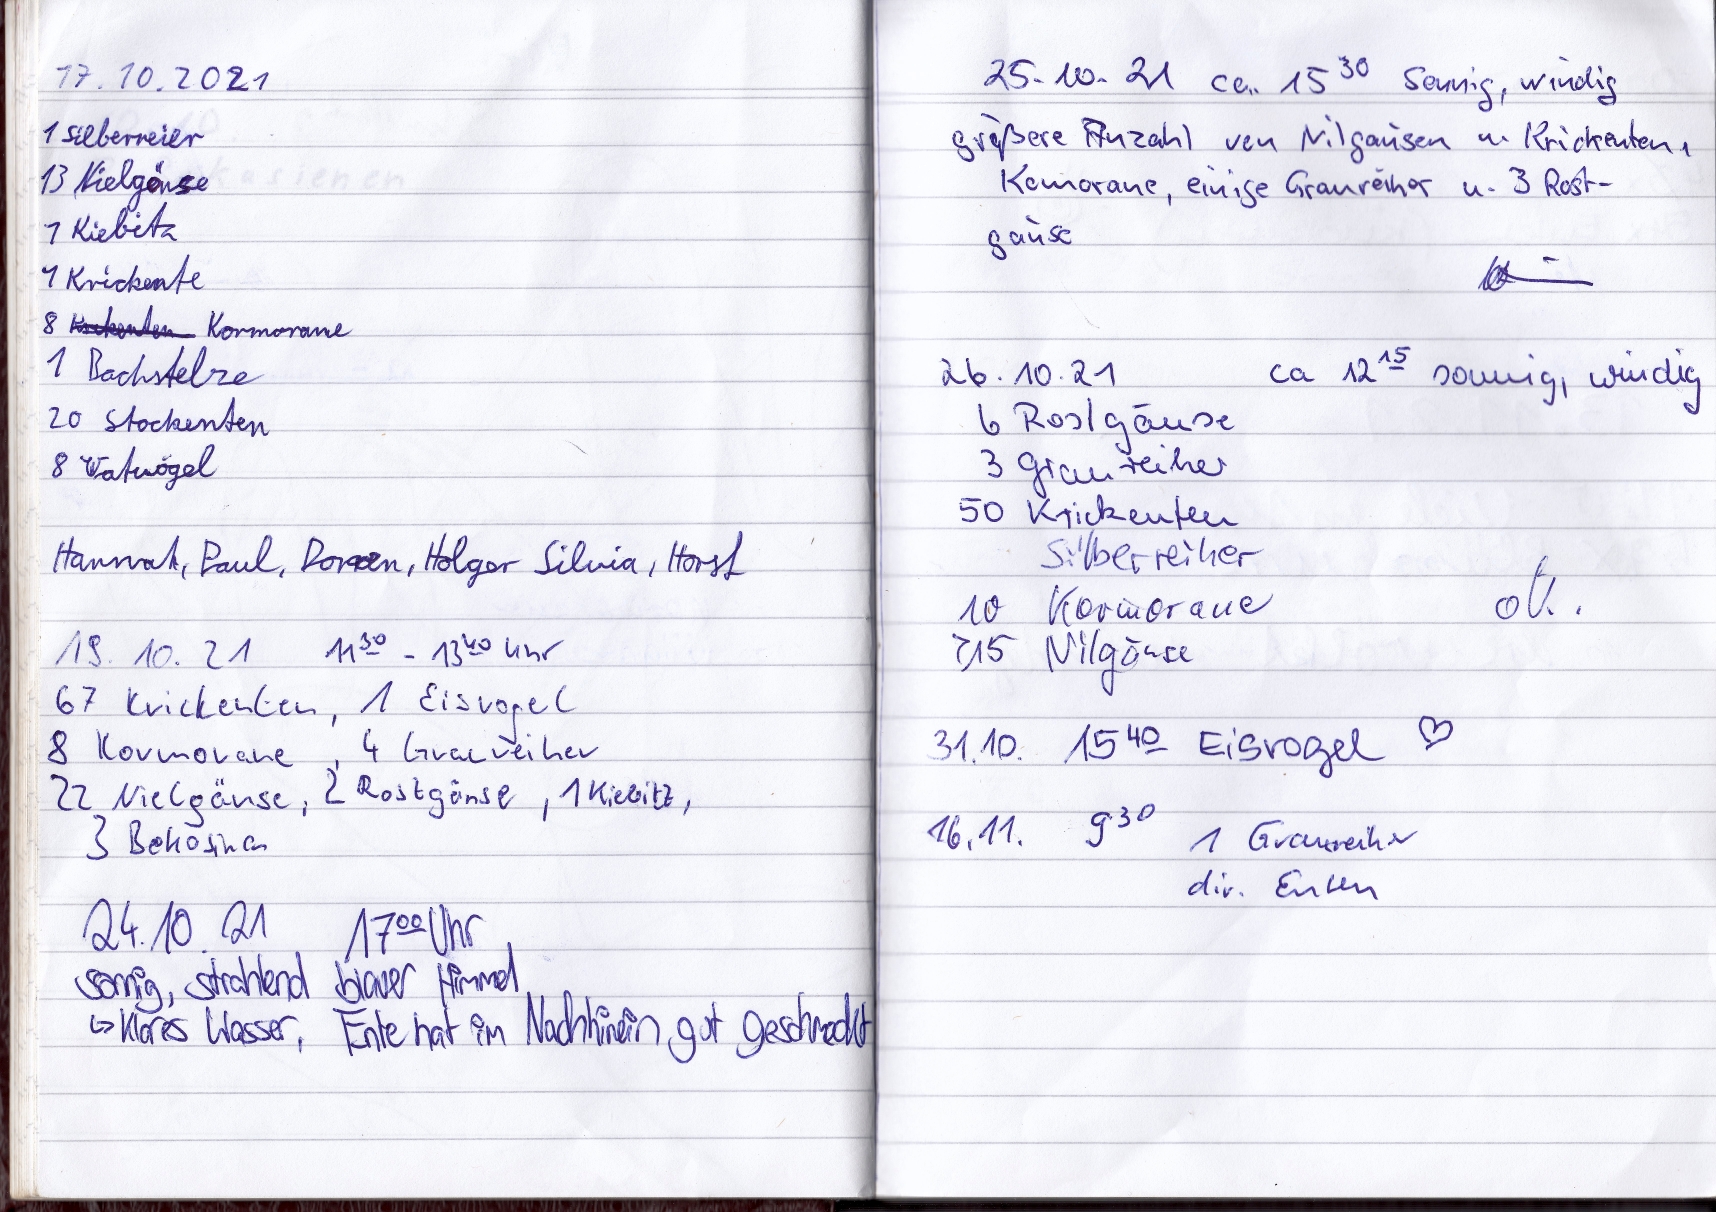 17.10.2021
1 Silberreier
13 Nielgänse
1 Kiebitz
1 Krickente
8 Kormorane
1 Bachstelze
20 Stockenten
8 Watvögel
Hannah, Paul, Doreen, Holger Silvia, Horst
19. 10. 21 11³⁰ - 13⁴⁰ Uhr
67 Krickenten, 1 Eisvogel
8 Kormorane, 4 Graureiher
22 Nielgänse, 2 Rostgänse, 1 Kiebitz,
3 Bekasinen
24.10.21 17⁰⁰ Uhr
sonnig, strahlend blauer Himmel
↳ Klares Wasser, Ente hat im Nachhinein gut geschmeckt
25.10.21 ca. 15³⁰ Sonnig, windig
größere Anzahl von Nilgänsen u. Krickenten,
Komorane, einige Graureiher u. 3 Rost-
gänse
26.10.21 ca 12¹⁵ sonnig, windig
6 Rostgänse
3 Graureiher
50 Krickenten
Silberreiher
10 Kormorane
715 Nilgänse
31.10. 15⁴⁰ Eisvogel ♡
16.11. 9³⁰ 1 Graureiher
div. Enten